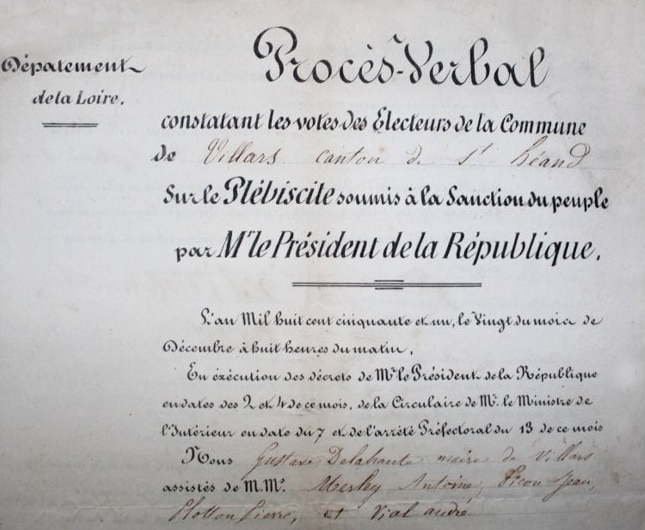 Procès-Verbal
Département
de la Loire.
constatant les votes des Electeurs de la Commune
de Villars canton de St héand
Sur le Plébiscite soumis à la Sanction du peuple
par Mr le Président de la République.
L'an Mil huit cent cinquante et un, le Vingt du mois de
Décembre à huit heures du matin.
En exécution des décrets de Mr le Président de la République
en dates des 2 et 4 de ce mois, de la Circulaire de Mr. le Ministre de
l'Intérieur en date du 7 et de l'arrêté Préfectoral du 13 de ce mois
Nous Gustave Delahante maire de Villars
assistés de M.Mrs. Merley Antoine, Picon Jean,
Pierre, et Vial andré